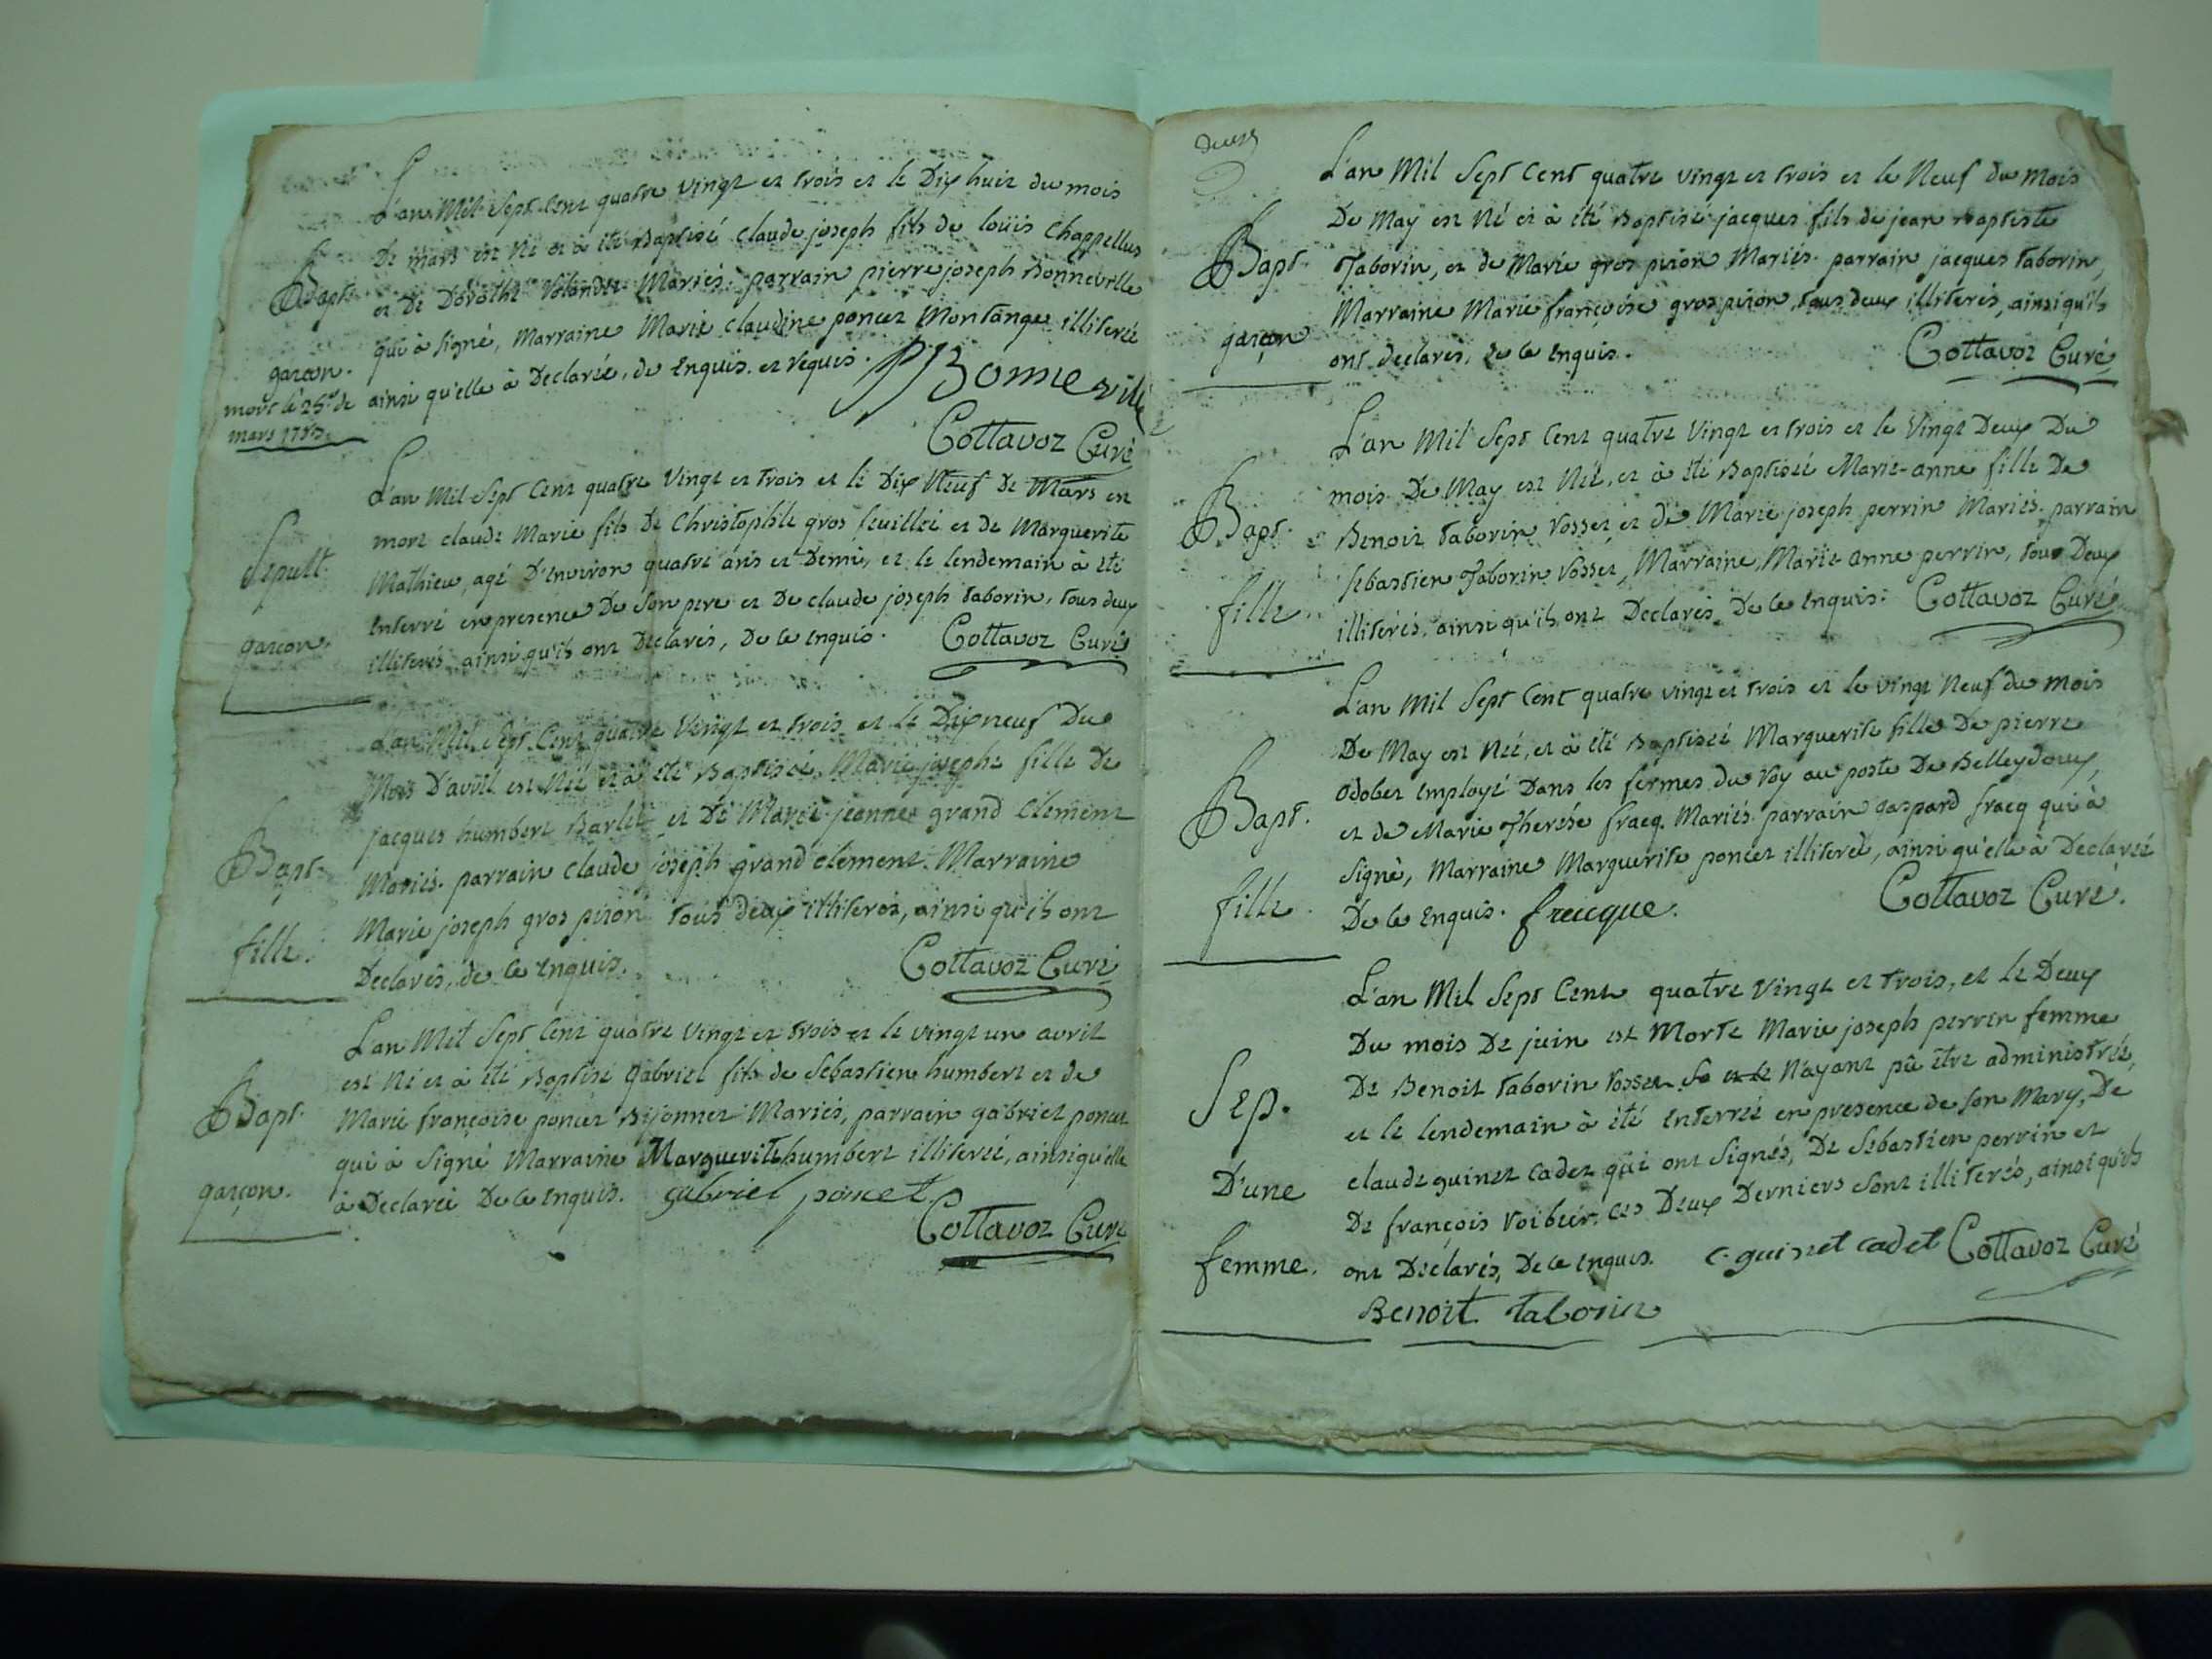 L'an Mil Sept Cent quatre vingt et trois et le Dix huit du mois
De mars est né et à été Baptisé claude joseph fils de loüis Chappellus
Bapt. et De Dorothé Volandet Mariés. parrain pierre joseph Bonneville
qui à signé, Marraine Marie claudine poncet Montange illiterée
garcon. ainsi qu'elle à Declarée, de enquis. et requis. PJBonneville
mort le 25e de
mars 1783.
Cottavoz Curé
L'an Mil Sept Cent quatre Vingt et trois et le Dix Neuf De Mars est
mort claude Marie fils De Christophle gros feuillée et de Marguerite
Sepult. Mathieu, agé D'environ quatre ans et Demi, et le lendemain à été
Enterré en presence De son pere et De claude joseph taborin, tous deux
garcon. illiterés ainsi qu'ils ont Declarés, De ce enquis. Cottavoz Curé
L'an Mil Sept Cent quatre Vingt et trois et le Dix neuf Du
Mois D'avril est Née et à été Baptisée Marie josephe fille De
jacques humbert Barlet et De Marie jeanne grand Clement
Bapt. Mariés. parrain Claude joseph grand clement. Marraine
Marie joseph gros piron tous deux illiterés, ainsi qu'ils ont
fille. Declarés, de ce enquis. Cottavoz Curé
L'an Mil Sept Cent quatre vingt et trois et le vingt un avril
est Né et à été Baptisé gabriel fils de Sebastien humbert et de
Bapt. Marie françoise poncet Bijonnet Mariés, parrain gabriel poncet
qui à signé Marraine Marguerite humbert illiterée, ainsi qu'elle
garçon. à Declarée De ce enquis. gabriel poncet.
Cottavoz Curé
L'an Mil Sept Cent quatre vingt et trois et le Neuf du Mois
De May est Né et à été Baptisé jacques fils de jean Baptiste
Bapt. Taborin, et de Marie gros piron Mariés. parrain jacques taborin,
Marraine Marie françoise gros piron, tous deux illiterés, ainsi qu'ils
garçon ont declarés, de ce enquis. Cottavoz Curé
L'an Mil Sept Cent quatre Vingt et trois et le Vingt Deux Du
mois De May est Née, et à été Baptisée Marie-anne fille De
Bapt. Benoit taborin Vosset et de Marie joseph perrin Mariés. parrain
Sebastien Taborin Vosset, Marraine, Marie-anne perrin, tous Deux
fille. illiterés. ainsi qu'ils ont Declarés De ce enquis: Cottavoz Curé
L'an Mil Sept Cent quatre vingt et trois et le vingt Neuf du Mois
De May est Née, et à été Baptisée Marguerite fille De pierre
odobet employé Dans les fermes du Roy au poste De Belleydoux,
Bapt. et de Marie Therése fracq. Mariés. parrain gaspard fracq qui à
Signé, Marraine Marguerite poncet illiterée, ainsi qu'elle à Declarée
fille. De ce enquis. fracque. Cottavoz Curé.
L'an Mil Sept Cent quatre Vingt et trois, et le Deux
Du mois De juin est Morte Marie joseph perrin femme
De Benoit taborin Vosset N'ayant pû être administrée,
Sep. et le lendemain à été Enterrée en presence de son Mary, De
claude guinet cadet qui ont Signés, De Sebastien perrin et
D'une De françois Voibier: ces Deux Derniers sont illiterés, ainsi qu'ils
femme. ont Declarés, De ce enquis. C. guinet cadet Cottavoz Curé
Benoit taborin